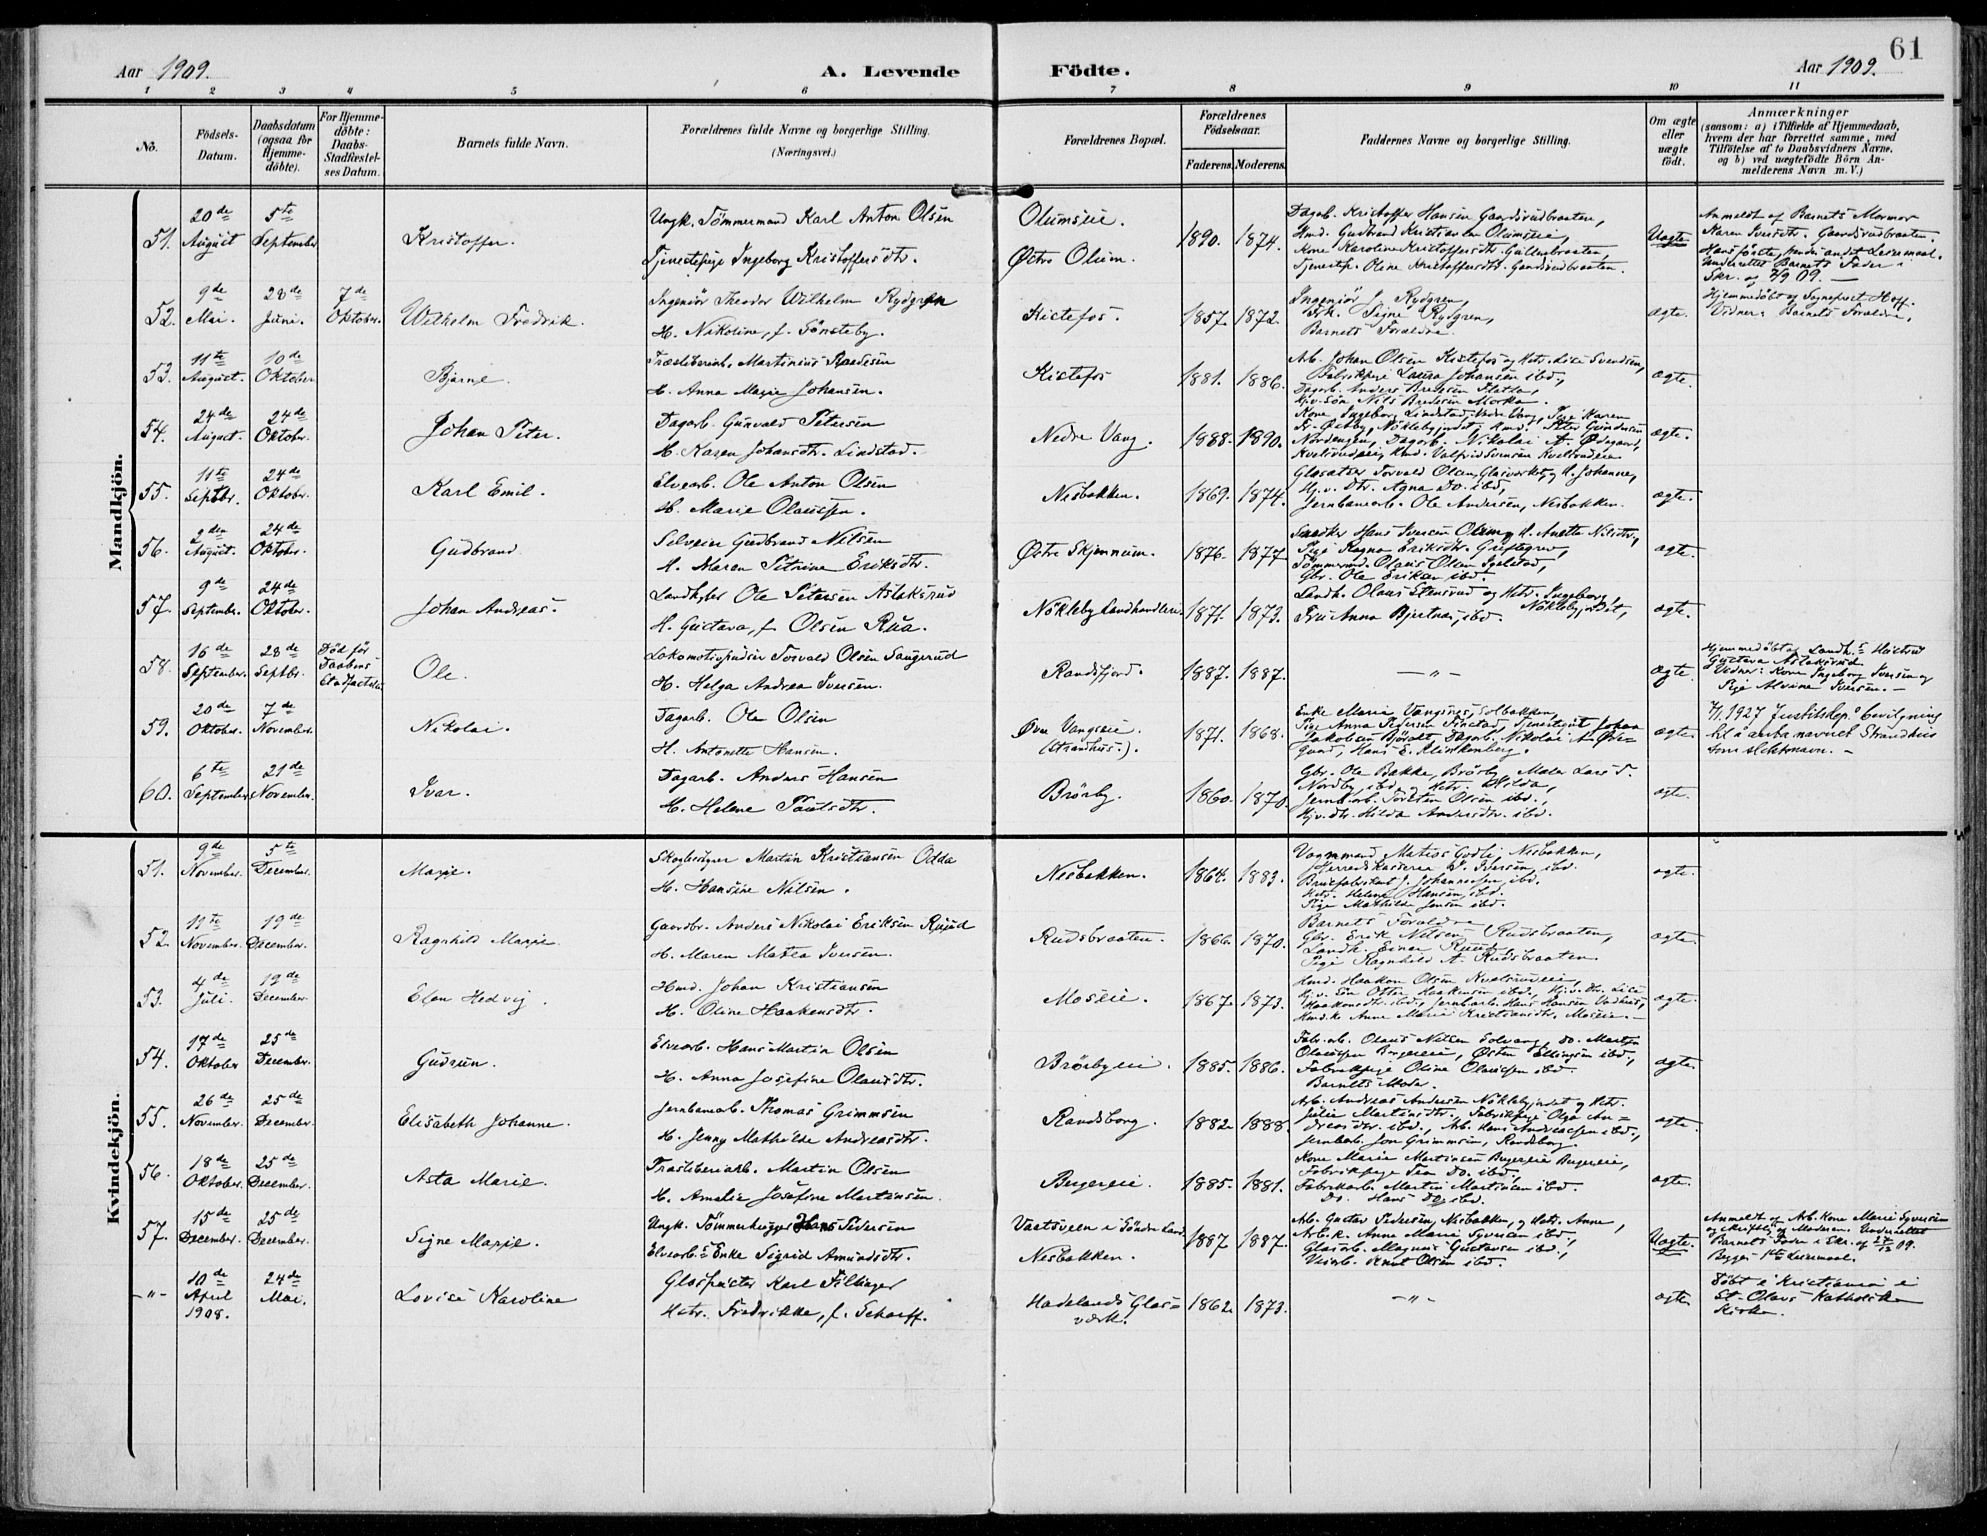 61
Aar 1909. A. Levende Födte. Aar 1909.
1 2 3 4 5 6 7 8 9 10 11
No.
Födsels-Datum.
Daabsdatum (ogsaa for Hjemme-döbte).
For Hjemme-döbte: Daabs-Stadfæstel-ses Datum.
Barnets fulde Navn.
Forældrenes fulde Navne og borgerlige Stilling.
(Næringsvei.)
Forældrenes Bopæl.
Forældrenes Födselsaar.
Faderens. Moderens.
Faddernes Navne og borgerlige Stilling.
Om ægte eller uægte födt.
Anmærkninger
(saasom: a) i Tilfælde af Hjemmedaab,
hvem der har forrettet samme, med
Tilföielse af to Daabsvidners Navne,
og b) ved uægtefödte Börn An-
melderens Navn m. V.)
Mandkjön.
51. 20de August 5te September Kristoffer.
Ungk. Tömmermand Karl Anton Olsen
Tjenestepige Ingeborg Kristoffersdtr.
Olumseie.
Östre Olum.
1890. 1874.
Dagarb. Kristoffer Hansen Gaardsrudbraaten,
Hmd. Gudbrand Kristiansen Olumseie,
Kone Karoline Kristoffersdtr. Gullenbraaten,
Tjenestep. Oline Kristoffersdtr. Gaardsrudbraaten.
Uægte
Anmeldt af Barnets Mormor
Karen Iversdtr. Gaardsrudbraaten.
Hans förste, hendes andet Leiermaal.
Underrettet Barnets Fader i
Skr. og 7/9 09. —
52. 9de Mai. 28de Juni. 7de Oktober. Wilhelm Fredrik.
Ingeniör Theodor Wilhelm Rydgren
H. Nikoline, f. Tönsteby.
Kistefos.
1857. 1872.
Ingeniör J. Rydgren,
Frk. Signe Rydgren,
Barnets Forældre.
ægte.
Hjemmedöbt af Sogneprest Hoff.
Vidner: Barnets Forældre.
53. 11te August. 10de Oktober Bjarne.
Træsliberiarb. Martinius Raadesen
H. Anna Marie Johansen.
Kistefos
1881. 1886.
Arb. Johan Olsen Kistefos og Hstr. Lise Svendsen,
Fabrikpige Laura Johansen ibd.,
Dagarb. Anders Bredesen Flatla,
Hjv. Sön Nils Bredesen Morka.
ægte.
54. 24de August. 24de Oktober. Johan Peter.
Dagarb. Gunvald Petersen
H. Karen Johansdtr. Lindstad.
Nedre Vang.
1888. 1890.
Kone Ingeborg Lindstad, Nedre Vang, Pige Karen
Nordengen, Dagarb. Nikolai A. Ödegaard,
ægte.
55. 11te Septbr. 24de Oktober. Karl Emil.
Elvearb. Ole Anton Olsen
H. Marie Olaussen.
Nesbakken.
1869. 1874.
Glasatser Torvald Olsen, Glasverket, og H. Johanne,
Hj.v. dtr. Agna Do. ibd.,
Jernbanearb. Ole Andersen, Nesbakken.
ægte.
56. 2den August. 24de Oktober. Gudbrand.
Selveier Gudbrand Nilsen
H. Maren Petrine Eriksdtr.
Östre Skjennum.
1876. 1877.
Snedker Hans Iversen Olum og H. Anette Nilsdtr.,
Pige Ragna Eriksdtr. Greftegrev,
Tömmermd. Olaus Olsen Egelstad,
Gbr. Ole Eriksen ibd.
ægte.
57. 9de September. 24de Oktober. Johan Andreas.
Landh. Ole Petersen Aslaksrud
H. Gustava, f. Olsen Rua.
Nökleby Landhandleri
1871. 1873.
Landh. Olaus Stensrud og Hstr. Ingeborg
Nöklebyjordet,
Fru Anna Bjertnæs, ibd.
ægte.
58. 16de September. 28de Septbr. Död för Daabens Stadfæstelse Ole.
Lokomotivpudser Torvald Olsen Saugerud
H. Helga Andrea Iversen.
Randsfjord.
1887. 1887.
— " —
ægte
Hjemmedöbt af Landh.s Hustru
Gustava Aslaksrud
Vidner: Kone Ingeborg Iversen og
Pige Alvine Iversen. —
59. 20de Oktober. 7de November. Nikolai.
Dagarb. Ole Olsen
H. Antonette Hansen.
Övre Vangseie
(Strandhus.)
1871. 1868.
Enke Marie Vangsnes, Solbakken,
Jakobsen Björdt, Dagarb. Nikolai A. Öde-
gaard, Hans E. Klinkenberg.
ægte.
7/1 1927 Justitsdep.s bevilgning
til å anta navnet Strandhus
som slektsnavn. —
60. 6te September. 21de November. Ivar.
Dagarb. Anders Hansen
H. Helene Paulsdtr.
Brörby.
1860. 1870.
Gbr. Ole Bakke, Brörby, Maler Lars P.
Nordby ibd. og Hstr. Hilda,
Jernb.arb. Torsten Olsen ibd.,
Hjv. dtr. Hilda Andersdtr. ibd.
ægte.
Kvindekjön.
51. 9de November. 5te December. Marie.
Skogbetjener Martin Kristiansen Odda
H. Hansine Nilsen.
Nesbakken.
1864. 1883.
Vognmand Matios Godli, Nesbakken,
Herredskasserer J. Iversen, ibd.
Brusfabrikant J. Johannesen, ibd.
Hstr. Helene Hansen, ibd.
Pige Mathilde Jensen ibd.
ægte.
52. 11te November. 19de December. Ragnhild Marie.
Gaardbr. Anders Nikolai Eriksen Ruud
H. Maren Matea Iversen.
Rudsbraaten.
1866. 1870.
Barnets Forældre
Gbr. Erik Nilsen Rudsbraaten,
Landh. Einar Ruud
Pige Ragnhild A. Rudsbraaten.
ægte.
53. 4de Juli. 19de December. Elen Hedvig.
Hmd. Johan Kristiansen
H. Oline Haakensdtr.
Moseie.
1867. 1873.
Hmd. Haakon Olsen Kvelsrudeie,
Hjv. Sön Otter Haakensen ibd., Hj.v. dtr. Lise
Haakonsdtr. ibd., Jernbarb. Hans Hansen
Hmd.k. Anne Marie Kristiansdtr. Moseie. —
ægte.
54. 17de Oktober 25de December. Gudrun.
Elvearb. Hans Martin Olsen
H. Anna Josefine Olausdtr.
Brörbyeie.
1885. 1886.
Fab.arb. Olaus Nilsen Solvang, Do. Martin
Olaussen Bergereie, Östen Ellingsen ibd.,
Fabrikpige Oline Olaussen ibd.
Barnets Moder.
ægte.
55. 26de November. 25de December. Elisabeth Johanne.
Jernbanearb. Thomas Grimmsen
H. Jenny Mathilde Andreasdtr.
Randsborg.
1882. 1888.
Arb. Andreas Andersen Nöklebyjordet og Hstr.
Julie Martinsdtr., Fabrikpige Olga An-
dreasdtr. ibd., Arb. Hans Andreassen ibd.,
Jernbarb. Jon Grimmsen, Randsborg.
ægte.
56. 18de Oktober. 25de December. Asta Marie.
Træsliberiarb. Martin Olsen
H. Amalie Josefine Martinsen.
Bergereie.
1885. 1881.
Kone Marie Martinsen Bergereie,
Fabrikpige Do. ibd.,
Fabrikarb. Martin Martinsen ibd.
Do. Hans Do. ibd.
ægte.
57. 15de December. 25de December. Signe Marie.
Ungk. Tömmerhugger Hans Pedersen
Elvearb.s Enke Sigrid Amundsdtr.
i Söndre Land
Nesbakken.
1887. 1887.
Arb. Gustav Pedersen, Nesbakken, og Hstr. Anne,
Arb.k. Anne Marie Syversen ibd.,
Glasarb. Magnus Gustavsen ibd.,
Knut Olsen ibd.
Uægte.
Anmeldt af Arb. Kone Marie Syversen
og skriftlig af Moderen. Underrettet
Barnets Fader i Skr. af 27/12 09.
Begges 1ste Leiermaal.
— " — 10de April 1908. 24de Mai. Lovise Karoline
Glaspuster Karl Fillinger
Hstr. Fredrikke, f. Scharff.
Hadelands Glas-
værk.
1862. 1873.
— " —
ægte.
Döbt i Kristiania i
St. Olavs Katholske
Kirke.